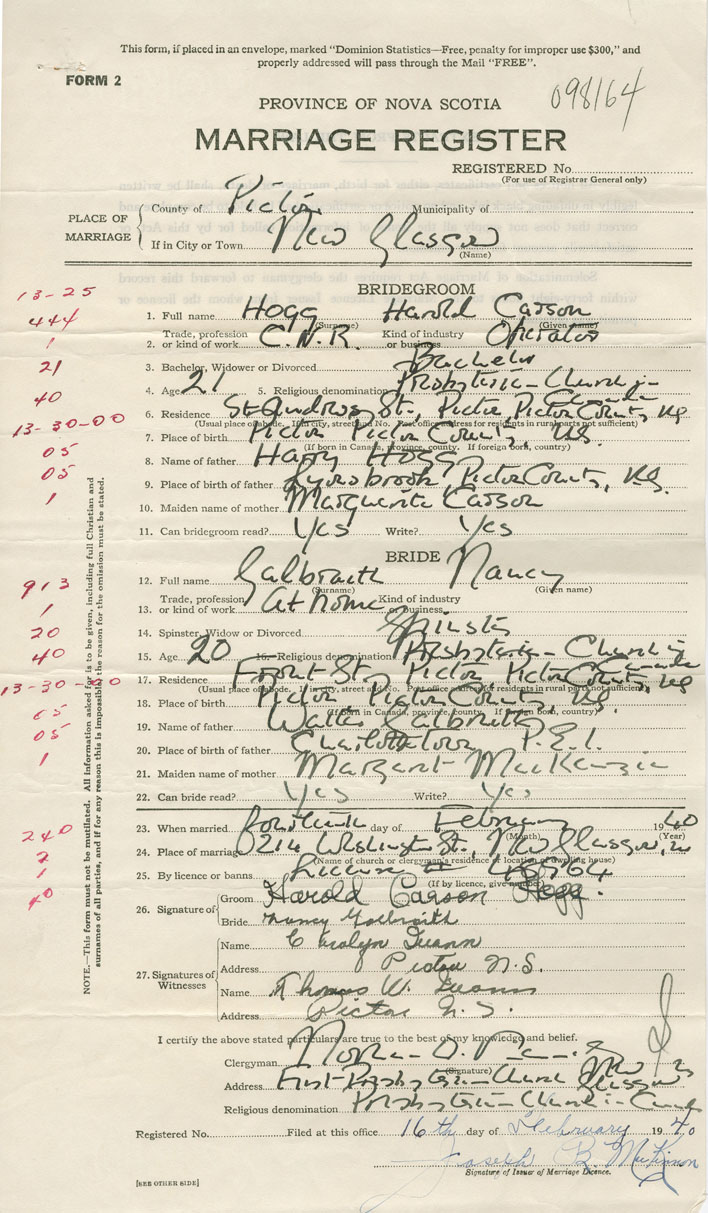 This form, if placed in an envelope, marked "Dominion Statistics—Free, penalty for improper use $300," and
properly addressed will pass through the Mail "FREE".
FORM 2
098164
PROVINCE OF NOVA SCOTIA
MARRIAGE REGISTER
REGISTERED No.
(For use of Registrar General only)
PLACE OF MARRIAGE
County of Pictou Municipality of
If in City or Town New Glasgow
(Name)
BRIDEGROOM
13-25
1. Full name Hogg Harold Carson
(Surname) (Given name)
444
Trade, profession Kind of industry
2. or kind of work C.N.R. or business Operator
1
3. Bachelor, Widower or Divorced Bachelor
21
4. Age 21 5. Religious denomination Presbyterian Church in Canada
40
6. Residence St Andrews St., Pictou, Pictou County, NS
(Usual place of abode. If in city, street and No. Post office address for residents in rural parts not sufficient)
13-30-00
7. Place of birth Pictou Pictou County, N.S.
(If born in Canada, province, county. If foreign born, country)
05
8. Name of father Harry Hogg
05
9. Place of birth of father Lyonsbrook, Pictou County, N.S.
1
10. Maiden name of mother Marguerite Carson
11. Can bridegroom read? Yes Write? Yes
BRIDE
12. Full name Galbraith Nancy
(Surname) (Given name)
913
Trade, profession Kind of industry
13. or kind of work At home or business
1
14. Spinster, Widow or Divorced Spinster
20
15. Age 20 16. Religious denomination Presbyterian Church in Canada
40
17. Residence Front St., Pictou, Pictou County, NS
(Usual place of abode. If in city, street and No. Post office address for residents in rural parts not sufficient)
13-30-00
18. Place of birth Pictou Pictou County, N.S.
(If born in Canada, province, county. If foreign born, country)
05
19. Name of father Walter Galbraith
05
20. Place of birth of father Charlottetown P.E.I.
1
21. Maiden name of mother Margaret MacKenzie
22. Can bride read? Yes Write? Yes
23. When married fourteenth day of February 1940
(Month) (Year)
240
24. Place of marriage 214 Washington St., New Glasgow, NS
(Name of church or clergyman's residence or location of dwelling house)
2
1
25. By licence or banns License
(If by licence, give number)
40
26. Signature of
Groom Harold Carson Hogg.
Bride Nancy Galbraith
27. Signatures of Witnesses
Name Carolyn
Address Pictou N.S.
Name Thomas W.
Address Pictou N.S.
NOTE.—This form must not be mutilated. All information asked for is to be given, including full Christian and
surnames of all parties, and if for any reason this is impossible the reason for the omission must be stated.
I certify the above stated particulars are true to the best of my knowledge and belief.
Clergyman
(Signature)
Address First Presbyterian Church New Glasgow NS
Religious denomination Presbyterian Church in Canada
Registered No. Filed at this office 16th day of February 1940
Joseph B. MacKinnon
Signature of Issuer of Marriage Licence.
[SEE OTHER SIDE]